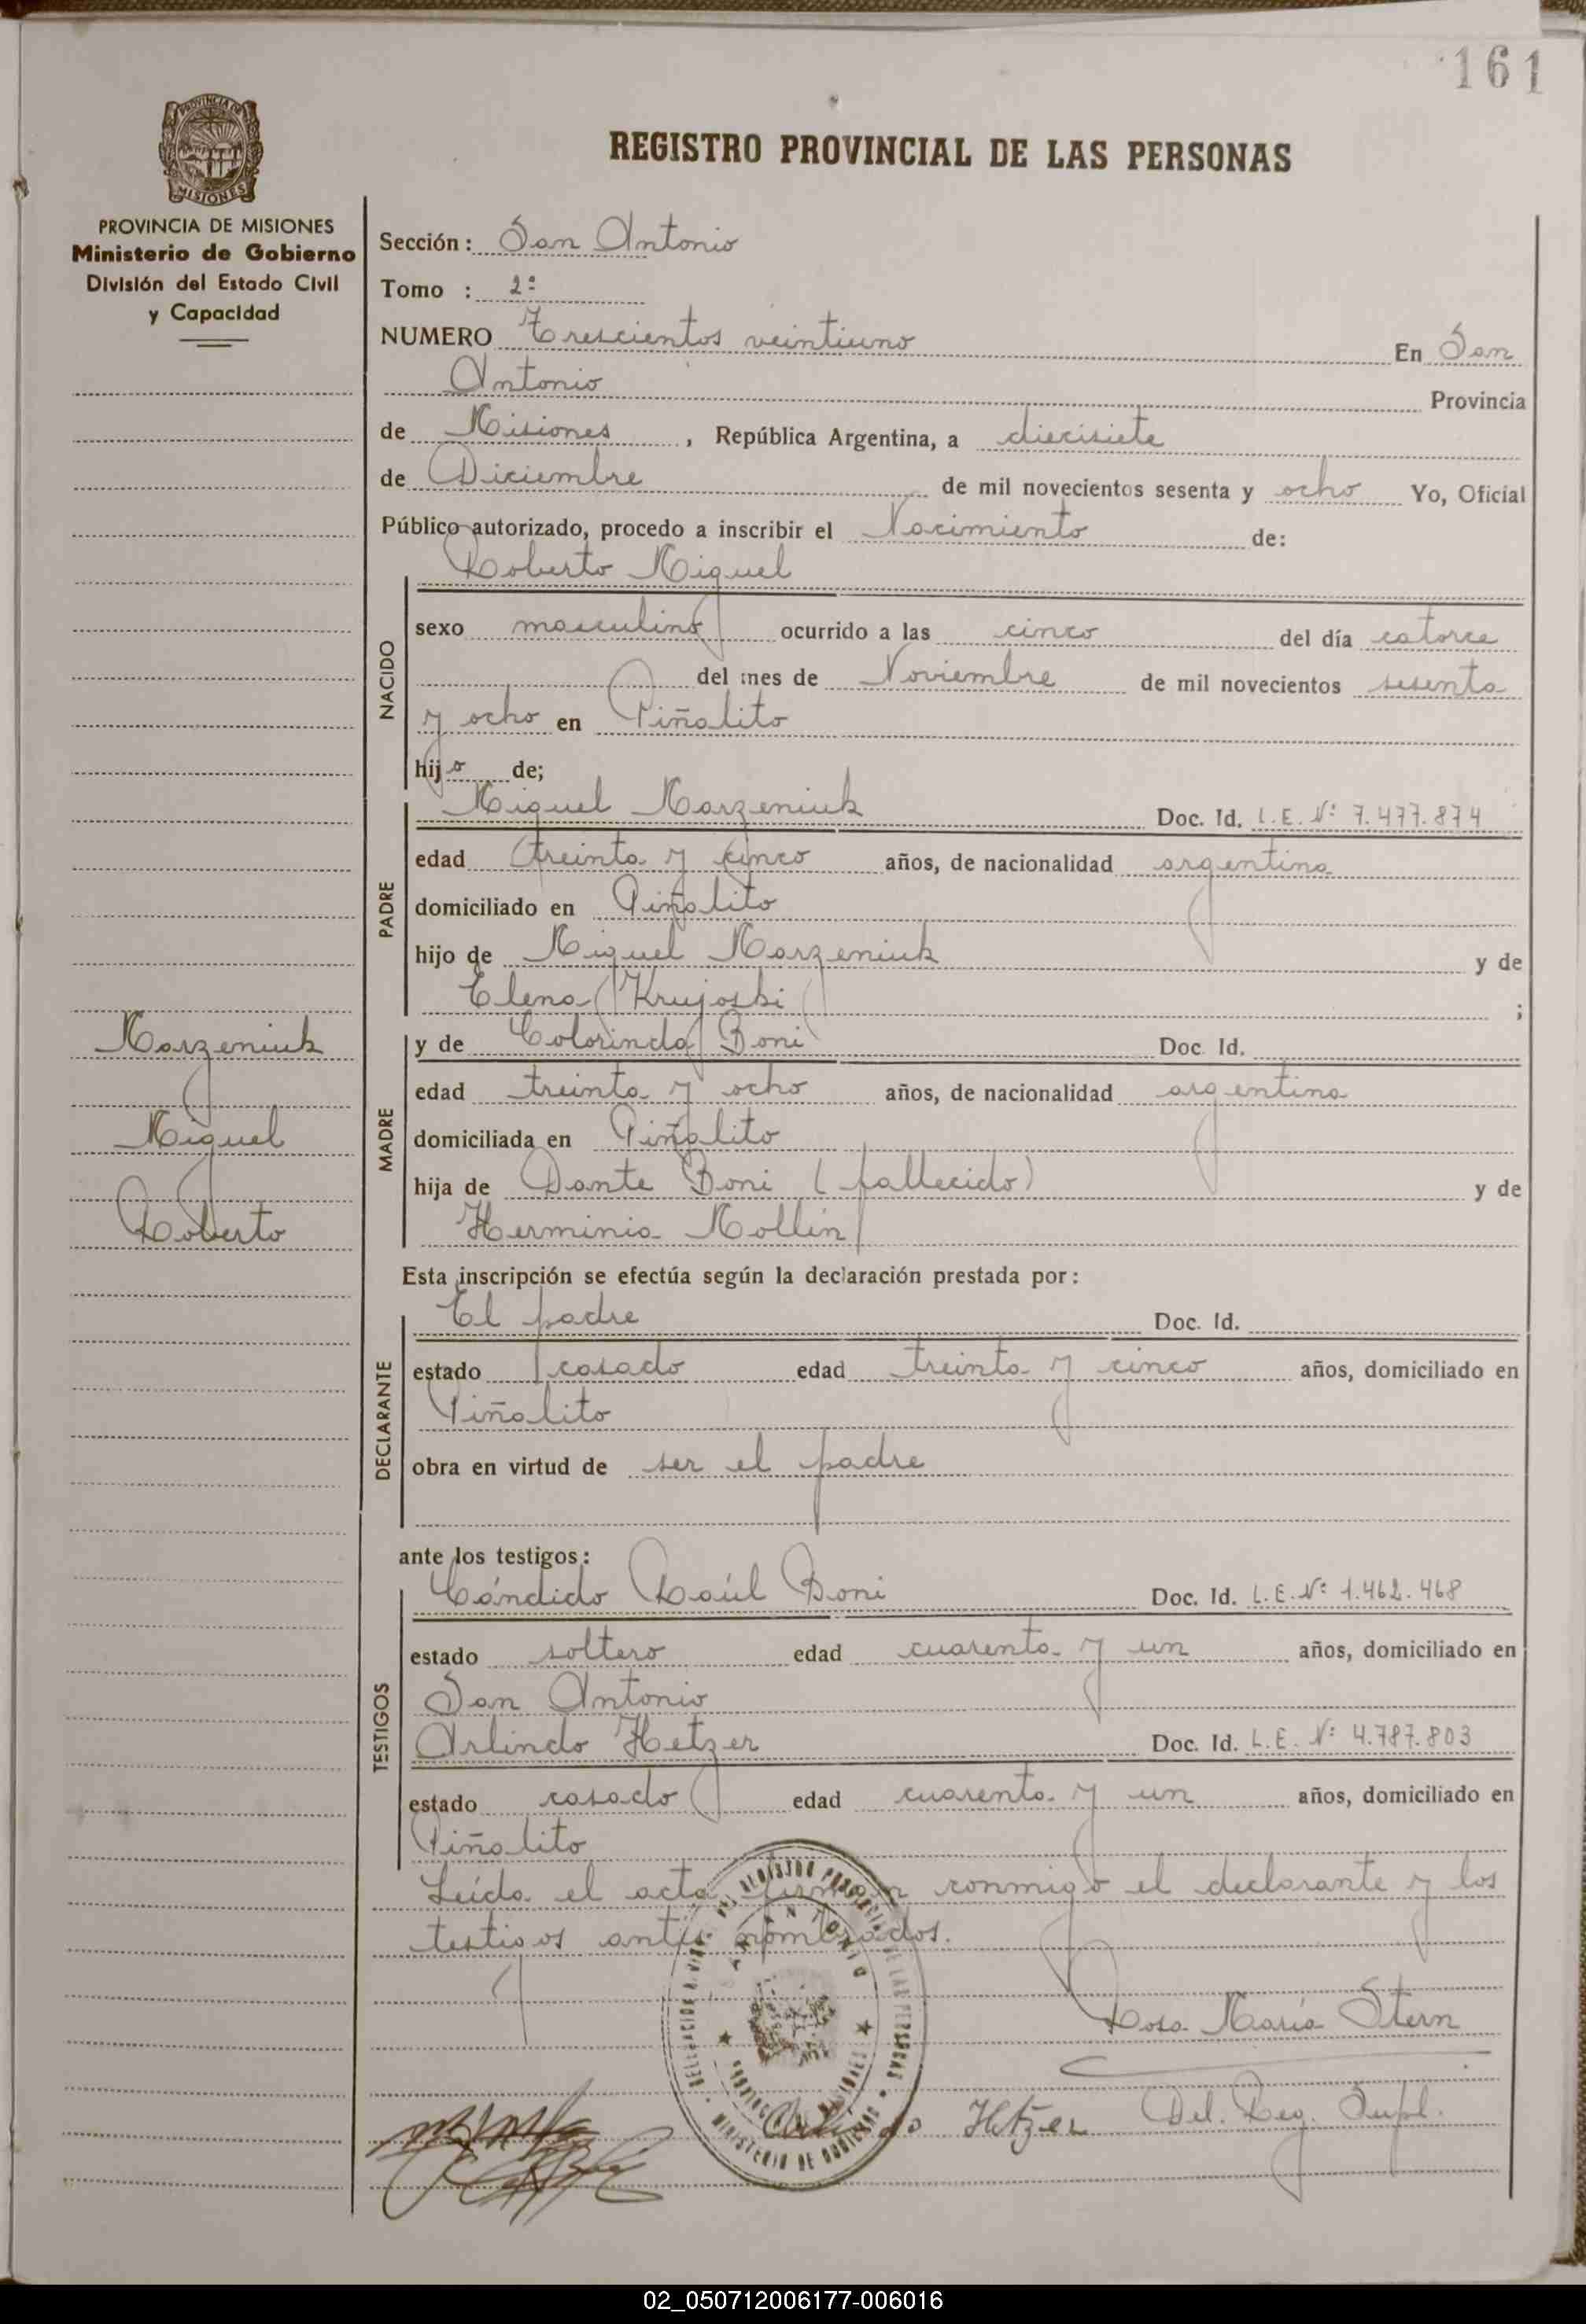 161
REGISTRO PROVINCIAL DE LAS PERSONAS
PROVINCIA DE MISIONES
Ministerio de Gobierno
División del Estado Civil
y Capacidad
Sección: San Antonio
Tomo : 2º
NUMERO Trescientos veintiuno En San
Antonio Provincia
de Misiones, República Argentina, a diecisiete
de Diciembre de mil novecientos sesenta y ocho Yo, Oficial
Público autorizado, procedo a inscribir el Nacimiento de:
NACIDO
Roberto Miguel
sexo masculino ocurrido a las cinco del día catorce
del mes de Noviembre de mil novecientos sesenta
y ocho en Piñalito
hijo de;
PADRE
Miguel Marzeniuk Doc. Id. L.E. Nº 7.477.874
edad treinta y cinco años, de nacionalidad argentina
domiciliado en Piñalito
hijo de Miguel Marzeniuk y de
Elena Krujoski ;
Marzeniuk
Miguel
Roberto
MADRE
y de Colorinda Boni Doc. Id.
edad treinta y ocho años, de nacionalidad argentina
domiciliada en Piñalito
hija de Dante Boni (fallecido) y de
Herminia Mollin
Esta inscripción se efectúa según la declaración prestada por:
DECLARANTE
El padre Doc. Id.
estado casado edad treinta y cinco años, domiciliado en
Piñalito
obra en virtud de ser el padre
ante los testigos:
TESTIGOS
Cándido Raúl Boni Doc. Id. L.E. Nº 1.462.468
estado soltero edad cuarenta y un años, domiciliado en
San Antonio
Arlindo Hetzer Doc. Id. L.E. Nº 4.787.803
estado casado edad cuarenta y un años, domiciliado en
Piñalito
Leída el acta firman conmigo el declarante y los
testigos antes nombrados.
Rosa María Stern
Arlindo Hetzer Del. Reg. Supl.
MINISTERIO DE GOBIERNO
02_050712006177-006016